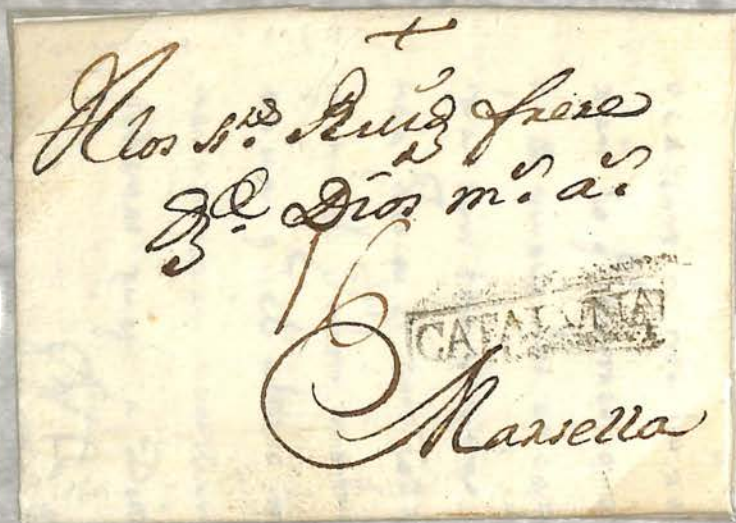 A los s.res Ruiz frere
g.e Dios m.s a.s
16
CATALUÑA
Marsella